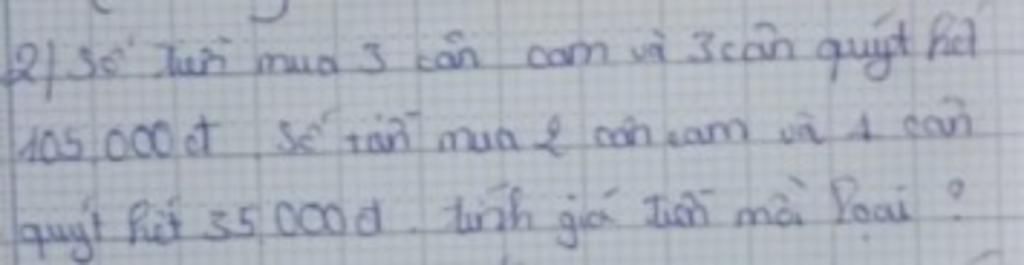 2) Số tiền mua 3 cân cam và 3 cân quýt hết
105,000đ. Số tiền mua 2 cân cam và 1 cân
quýt hết 55,000đ. tính giá tiền mỗi loại ?